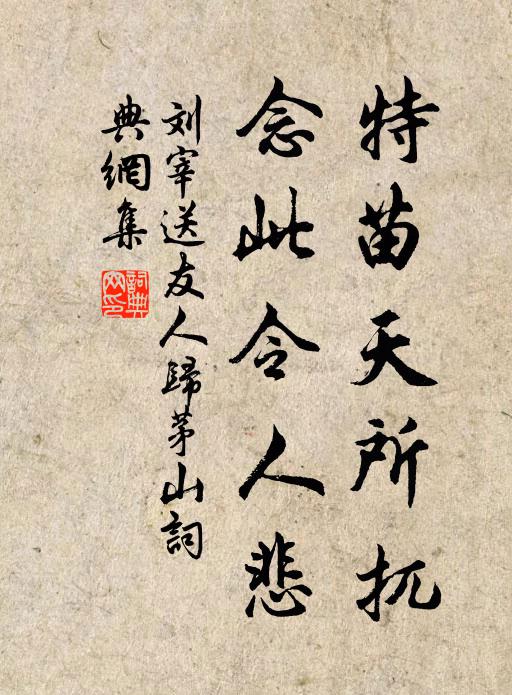 特苗天所扤
念此令人悲
刘宰送友人歸茅山詞
典網集
詞典网印